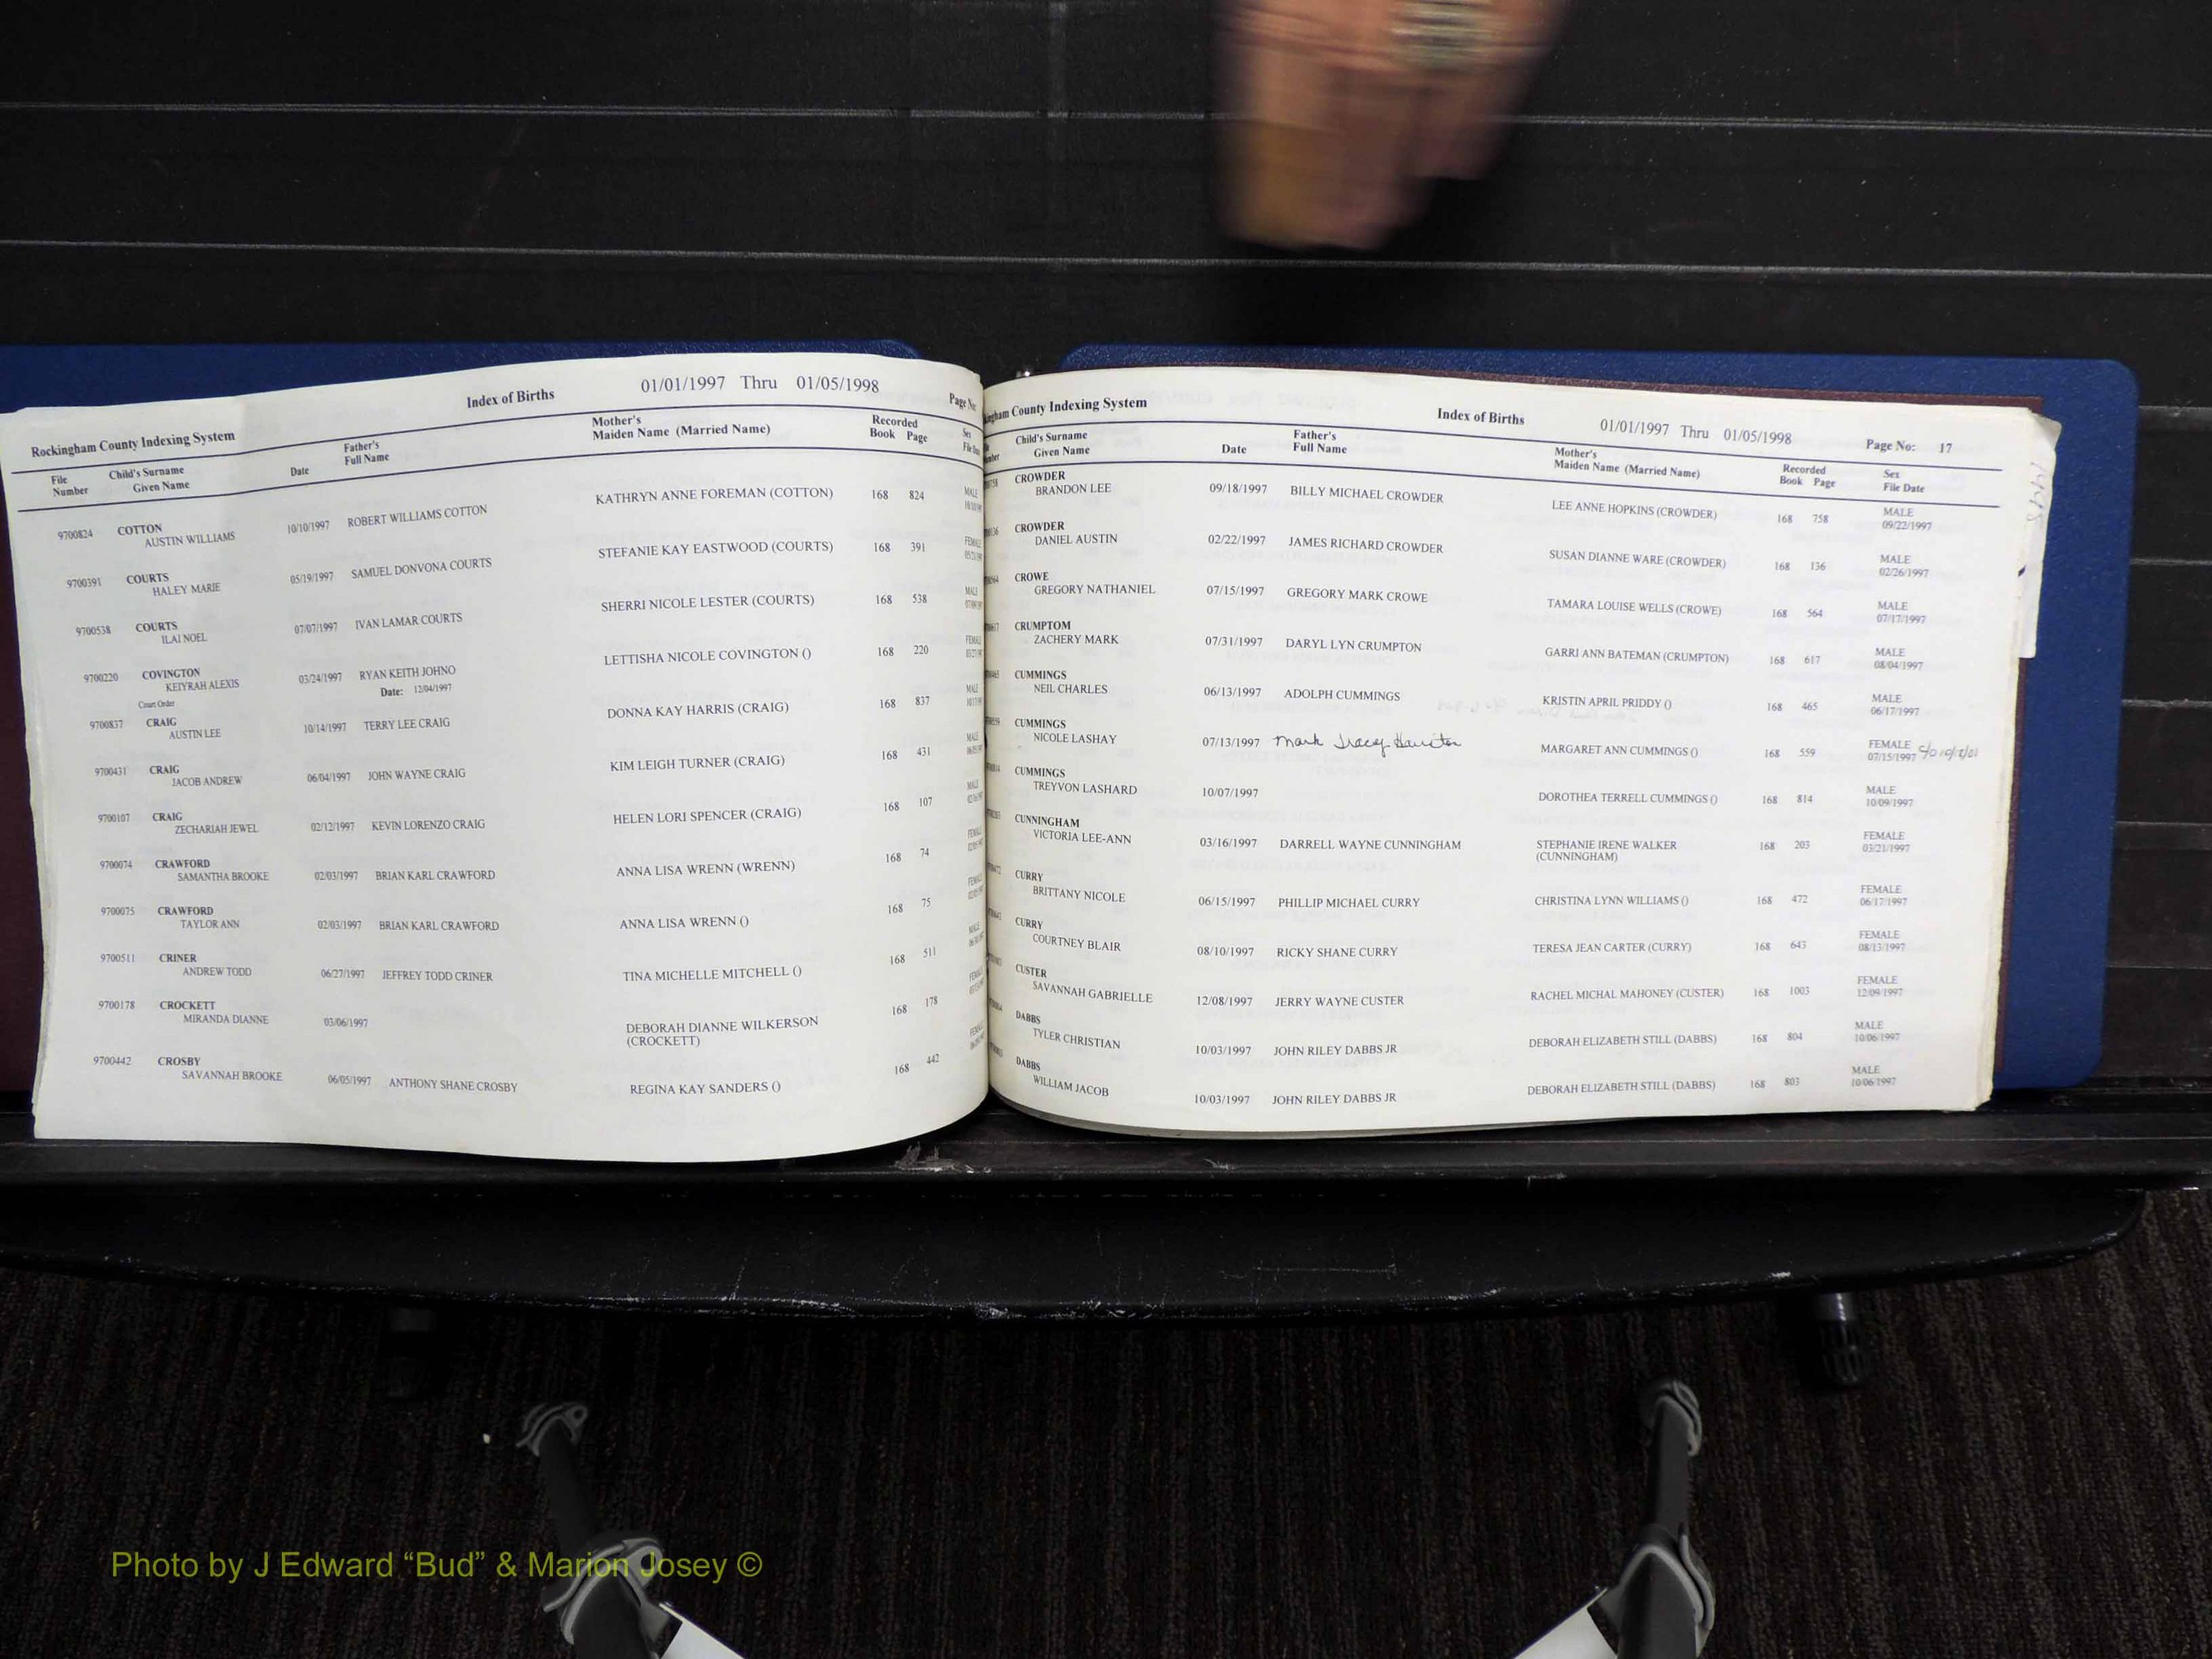 Rockingham County Indexing System Index of Births 01/01/1997 Thru 01/05/1998 Page No:
File Number Child's Surname Given Name Date Father's Full Name Mother's Maiden Name (Married Name) Recorded Book Page Sex
9700824 COTTON 10/10/1997 ROBERT WILLIAMS COTTON KATHRYN ANNE FOREMAN (COTTON) 168 824 MALE
AUSTIN WILLIAMS
9700391 COURTS 05/19/1997 SAMUEL DONVONA COURTS STEFANIE KAY EASTWOOD (COURTS) 168 391
HALEY MARIE
9700538 COURTS 07/07/1997 IVAN LAMAR COURTS SHERRI NICOLE LESTER (COURTS) 168 538 MALE
ILAI NOEL
9700220 COVINGTON 03/24/1997 RYAN KEITH JOHNO LETTISHA NICOLE COVINGTON () 168 220
KEIYRAH ALEXIS Date: 12/04/1997
Court Order
9700837 CRAIG 10/14/1997 TERRY LEE CRAIG DONNA KAY HARRIS (CRAIG) 168 837 MALE
AUSTIN LEE
9700431 CRAIG 06/04/1997 JOHN WAYNE CRAIG KIM LEIGH TURNER (CRAIG) 168 431 MALE
JACOB ANDREW
9700107 CRAIG 02/12/1997 KEVIN LORENZO CRAIG HELEN LORI SPENCER (CRAIG) 168 107 MALE
ZECHARIAH JEWEL
9700074 CRAWFORD 02/03/1997 BRIAN KARL CRAWFORD ANNA LISA WRENN (WRENN) 168 74
SAMANTHA BROOKE
9700075 CRAWFORD 02/03/1997 BRIAN KARL CRAWFORD ANNA LISA WRENN () 168 75
TAYLOR ANN
9700511 CRINER 06/27/1997 JEFFREY TODD CRINER TINA MICHELLE MITCHELL () 168 511 MALE
ANDREW TODD
9700178 CROCKETT 03/06/1997 DEBORAH DIANNE WILKERSON 168 178
MIRANDA DIANNE (CROCKETT)
9700442 CROSBY 06/05/1997 ANTHONY SHANE CROSBY REGINA KAY SANDERS () 168 442
SAVANNAH BROOKE
County Indexing System Index of Births 01/01/1997 Thru 01/05/1998 Page No: 17
Child's Surname Given Name Date Father's Full Name Mother's Maiden Name (Married Name) Recorded Book Page Sex File Date
CROWDER 09/18/1997 BILLY MICHAEL CROWDER LEE ANNE HOPKINS (CROWDER) 168 758 MALE
BRANDON LEE 09/22/1997
CROWDER 02/22/1997 JAMES RICHARD CROWDER SUSAN DIANNE WARE (CROWDER) 168 136 MALE
DANIEL AUSTIN 02/26/1997
CROWE 07/15/1997 GREGORY MARK CROWE TAMARA LOUISE WELLS (CROWE) 168 564 MALE
GREGORY NATHANIEL 07/17/1997
CRUMPTOM 07/31/1997 DARYL LYN CRUMPTON GARRI ANN BATEMAN (CRUMPTON) 168 617 MALE
ZACHERY MARK 08/04/1997
CUMMINGS 06/13/1997 ADOLPH CUMMINGS KRISTIN APRIL PRIDDY () 168 465 MALE
NEIL CHARLES 06/17/1997
CUMMINGS 07/13/1997 Mark Tracey MARGARET ANN CUMMINGS () 168 559 FEMALE
NICOLE LASHAY 07/15/1997
CUMMINGS 10/07/1997 DOROTHEA TERRELL CUMMINGS () 168 814 MALE
TREYVON LASHARD 10/09/1997
CUNNINGHAM 03/16/1997 DARRELL WAYNE CUNNINGHAM STEPHANIE IRENE WALKER 168 203 FEMALE
VICTORIA LEE-ANN (CUNNINGHAM) 03/21/1997
CURRY 06/15/1997 PHILLIP MICHAEL CURRY CHRISTINA LYNN WILLIAMS () 168 472 FEMALE
BRITTANY NICOLE 06/17/1997
CURRY 08/10/1997 RICKY SHANE CURRY TERESA JEAN CARTER (CURRY) 168 643 FEMALE
COURTNEY BLAIR 08/13/1997
CUSTER 12/08/1997 JERRY WAYNE CUSTER RACHEL MICHAL MAHONEY (CUSTER) 168 1003 FEMALE
SAVANNAH GABRIELLE 12/09/1997
DABBS 10/03/1997 JOHN RILEY DABBS JR DEBORAH ELIZABETH STILL (DABBS) 168 804 MALE
TYLER CHRISTIAN 10/06/1997
DABBS 10/03/1997 JOHN RILEY DABBS JR DEBORAH ELIZABETH STILL (DABBS) 168 803 MALE
WILLIAM JACOB 10/06/1997
Photo by J Edward “Bud” & Marion Josey ©